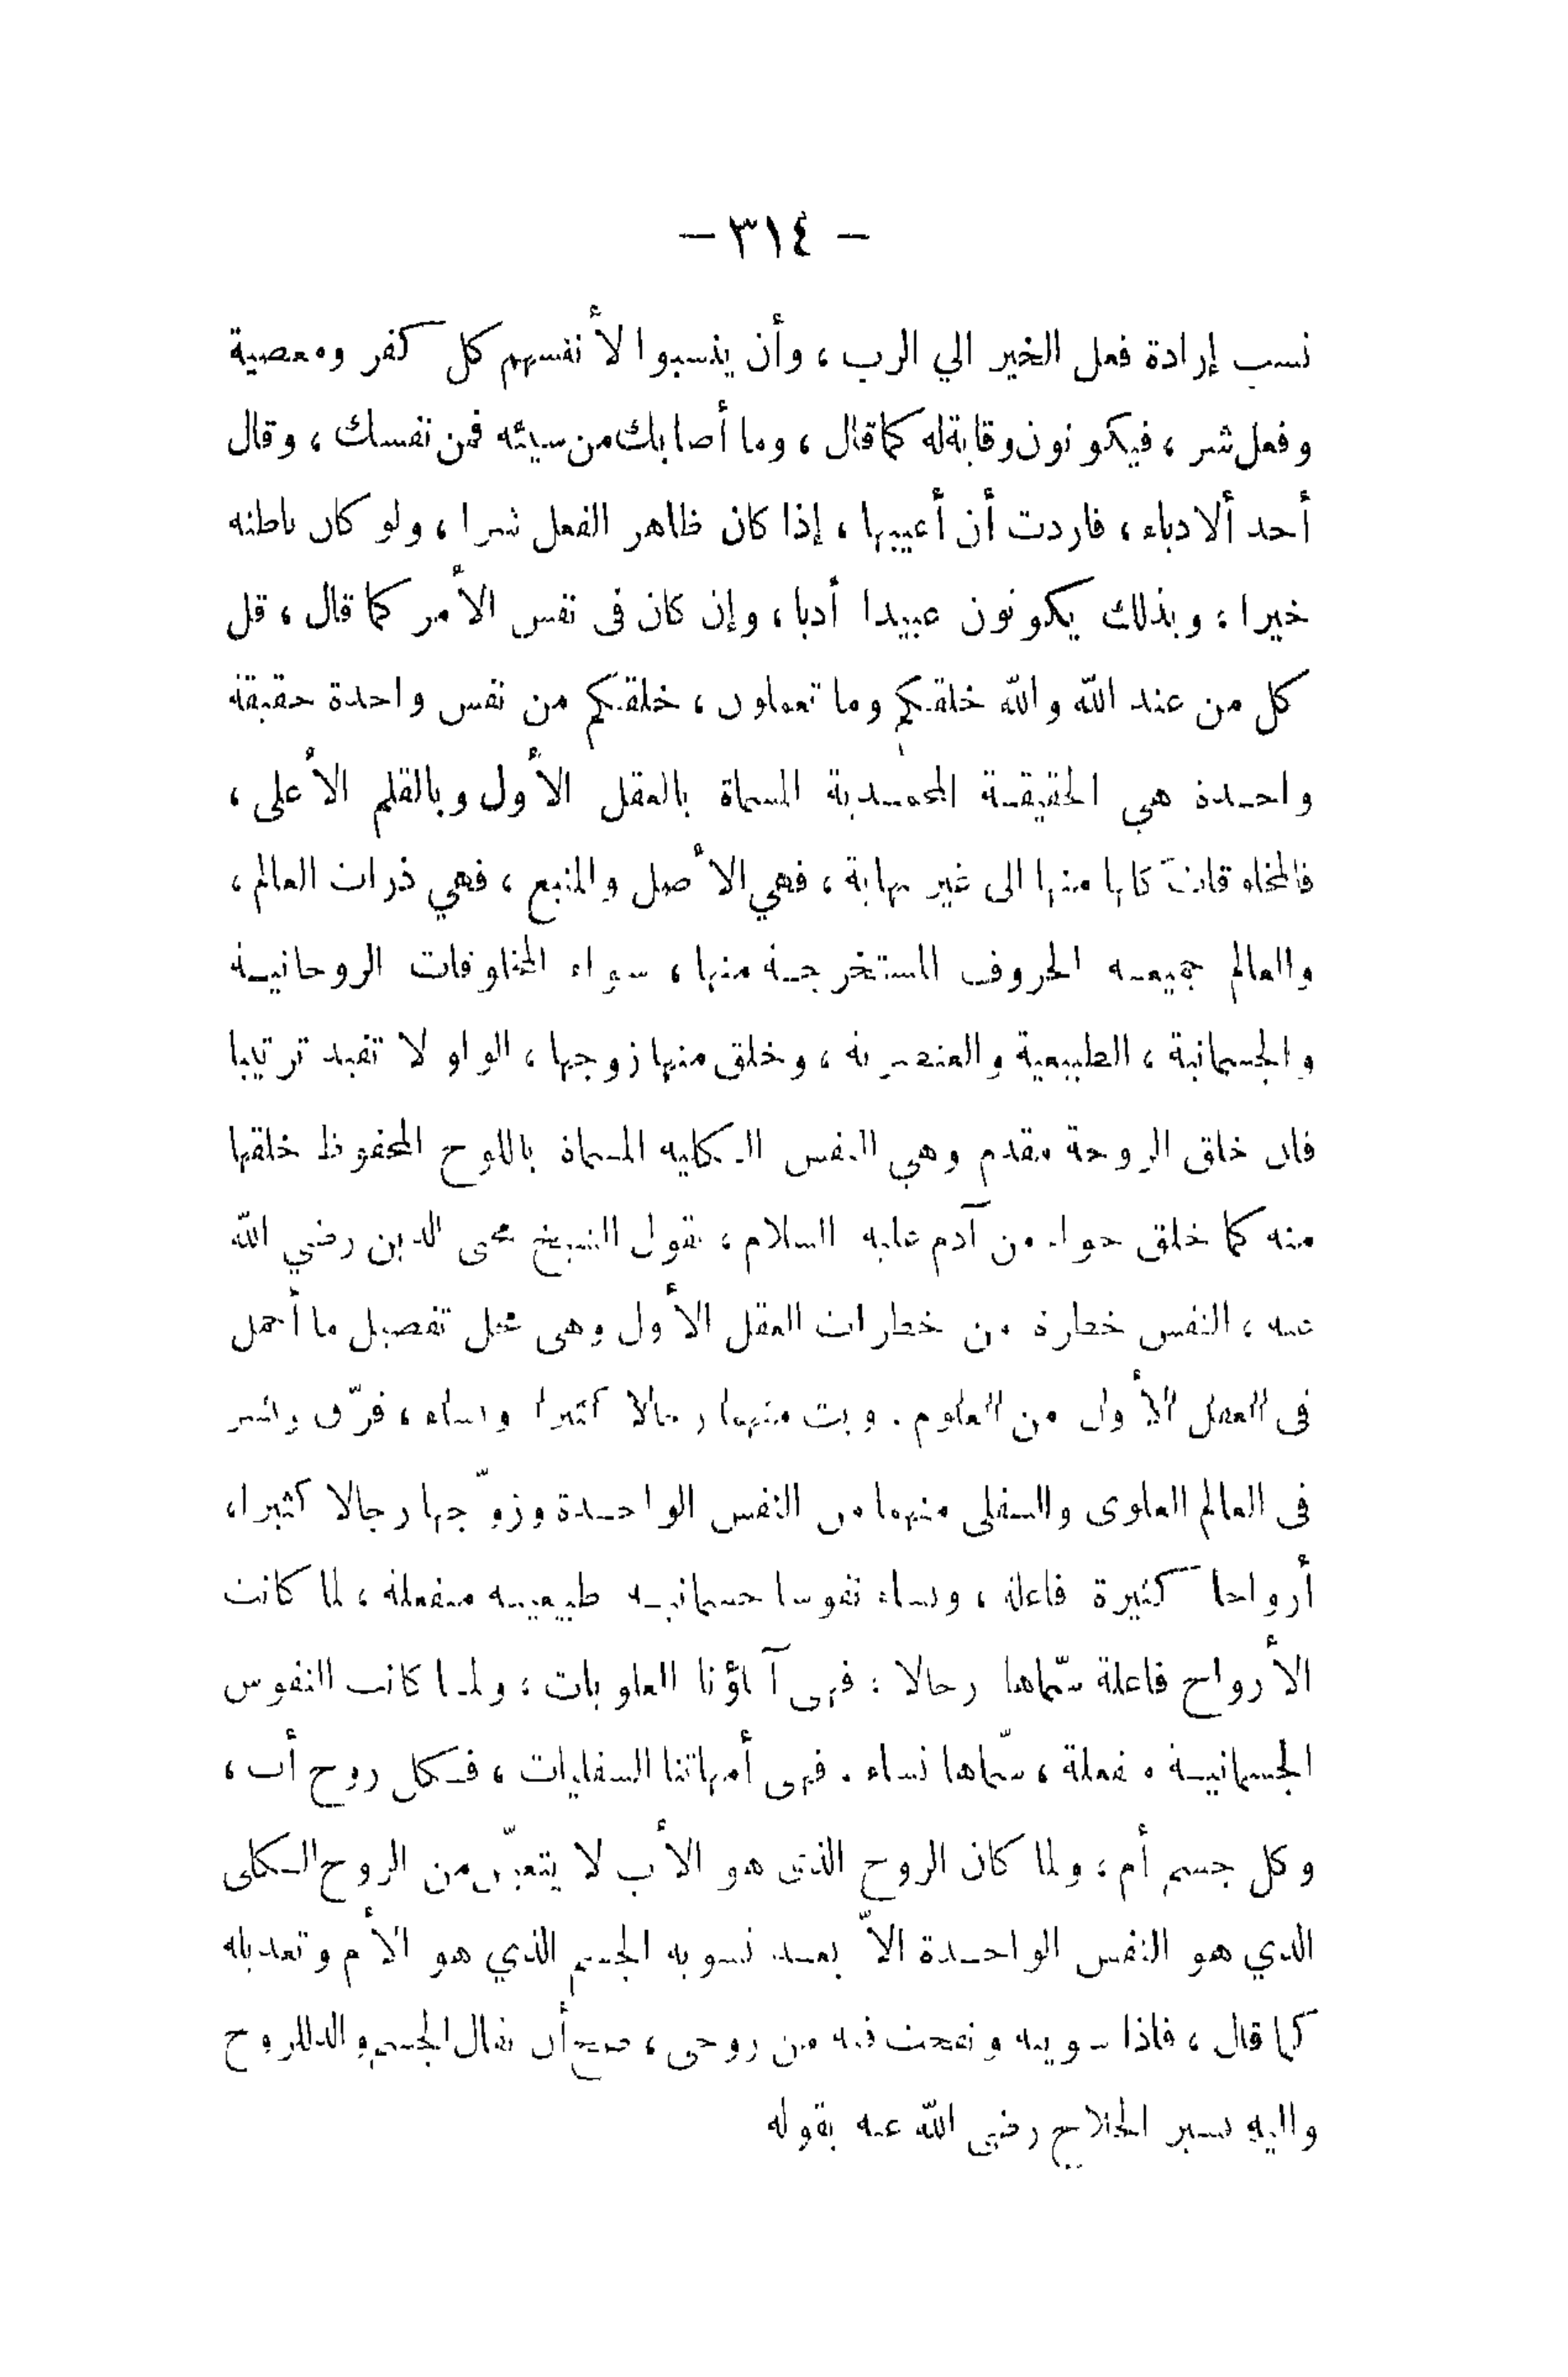 — ٣١٤ —
نسب إرادة فعل الخير الي الرب ، وأن ينسبوا لأنفسهم كل كفر ومعصية
وفعل شر ، فيكونون وقاية له كما قال ، وما أصابك من سيئة فمن نفسك ، وقال
أحد ألادباء ، فاردت أن أعيبها ، إذا كان ظاهر الفعل شرا ، ولو كان باطنه
خيرا ؛ وبذلك يكونون عبيدا أدبا ، وإن كان فى نفس الأمر كما قال ، قل
كل من عند الله والله خلقكم وما تعملون ، خلقكم من نفس واحدة حقيقة
واحدة هي الحقيقة المحمدية المسماة بالعقل الأول وبالقلم الأعلى ،
فالمخلوقات كلها منها الى غير نهاية ، فهي الأصل والمنبع ، فهي ذرات العالم ،
والعالم جميعه الحروف المستخرجة منها ، سواء المخلوقات الروحانية
والجسمانية ، الطبيعية والعنصرية ، وخلق منها زوجها ، الواو لا تفيد ترتيبا
فان خلق الزوجة مقدم وهي النفس الكلية المسماة باللوح المحفوظ خلقها
منه كما خلق حواء من آدم عليه السلام ، يقول الشيخ محى الدين رضي الله
عنه ، النفس خطرة من خطرات العقل الأول وهى محل تفصيل ما أجمل
فى العقل الأول من العلوم . وبث منهما رجالا كثيرا ونساء ، فرّق ونشر
فى العالم العلوى والسفلى منهما من النفس الواحدة وزوّجها رجالا كثيرا ،
أرواحا كثيرة فاعلة ، ونساء نفوسا جسمانية طبيعية منفعلة ، لما كانت
الأرواح فاعلة سمّاها رجالا : فهى آباؤنا العلويات ؛ ولما كانت النفوس
الجسمانية منفعلة ، سمّاها نساء . فهى أمهاتنا السفليات ، فكل روح أب ،
وكل جسم أم ؛ ولما كان الروح الذى هو الأب لا يتعيّن من الروح الكلى
الذي هو النفس الواحدة الاّ بعد تسوية الجسم الذي هو الأم وتعديله
كما قال ، فاذا سويته ونفخت فيه من روحى ، صح أن يقال الجسم والد للروح
واليه يشير الحلاج رضى الله عنه بقوله